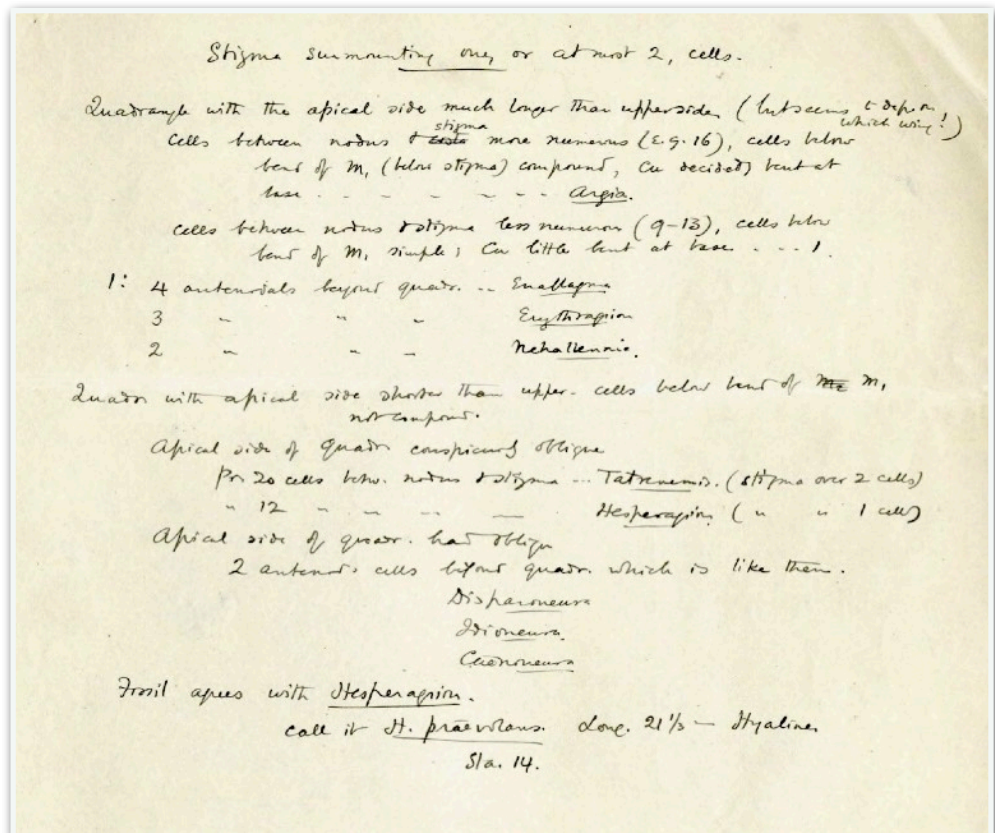 Stigma surmounting one, or at most 2, cells.
Quadrangle with the apical side much longer than upperside, (but seems to depend on
which wing!)
stigma
Cells between nodus & more numerous (e.g. 16), cells below
bend of M, (below stigma) compound, Cu decidedly bent at
base - - - - - Argia.
Cells between nodus & stigma less numerous (9-13), cells below
bend of M, simple; Cu little bent at base - - - 1.
1: 4 antenodals beyond quadr. -- Enallagma
3 " " " Erythragrion
2 " " " Nehallennia.
Quadr with apical side shorter than upper - cells below bend of M,
not compound.
Apical side of quadr. conspicuously oblique
20 cells betw. nodus & stigma --- (stigma over 2 cells)
" 12 " " " " Hesperagrion (" " 1 cell)
Apical side of quadr. oblique
2 antenod. cells beyond quadr. which is like them.
Disparoneura
Idioneura
Caenoneura
Fossil agrees with Hesperagrion.
call it H. praevolans. Long. 21 1/3 - Hyaline,
Sta. 14.